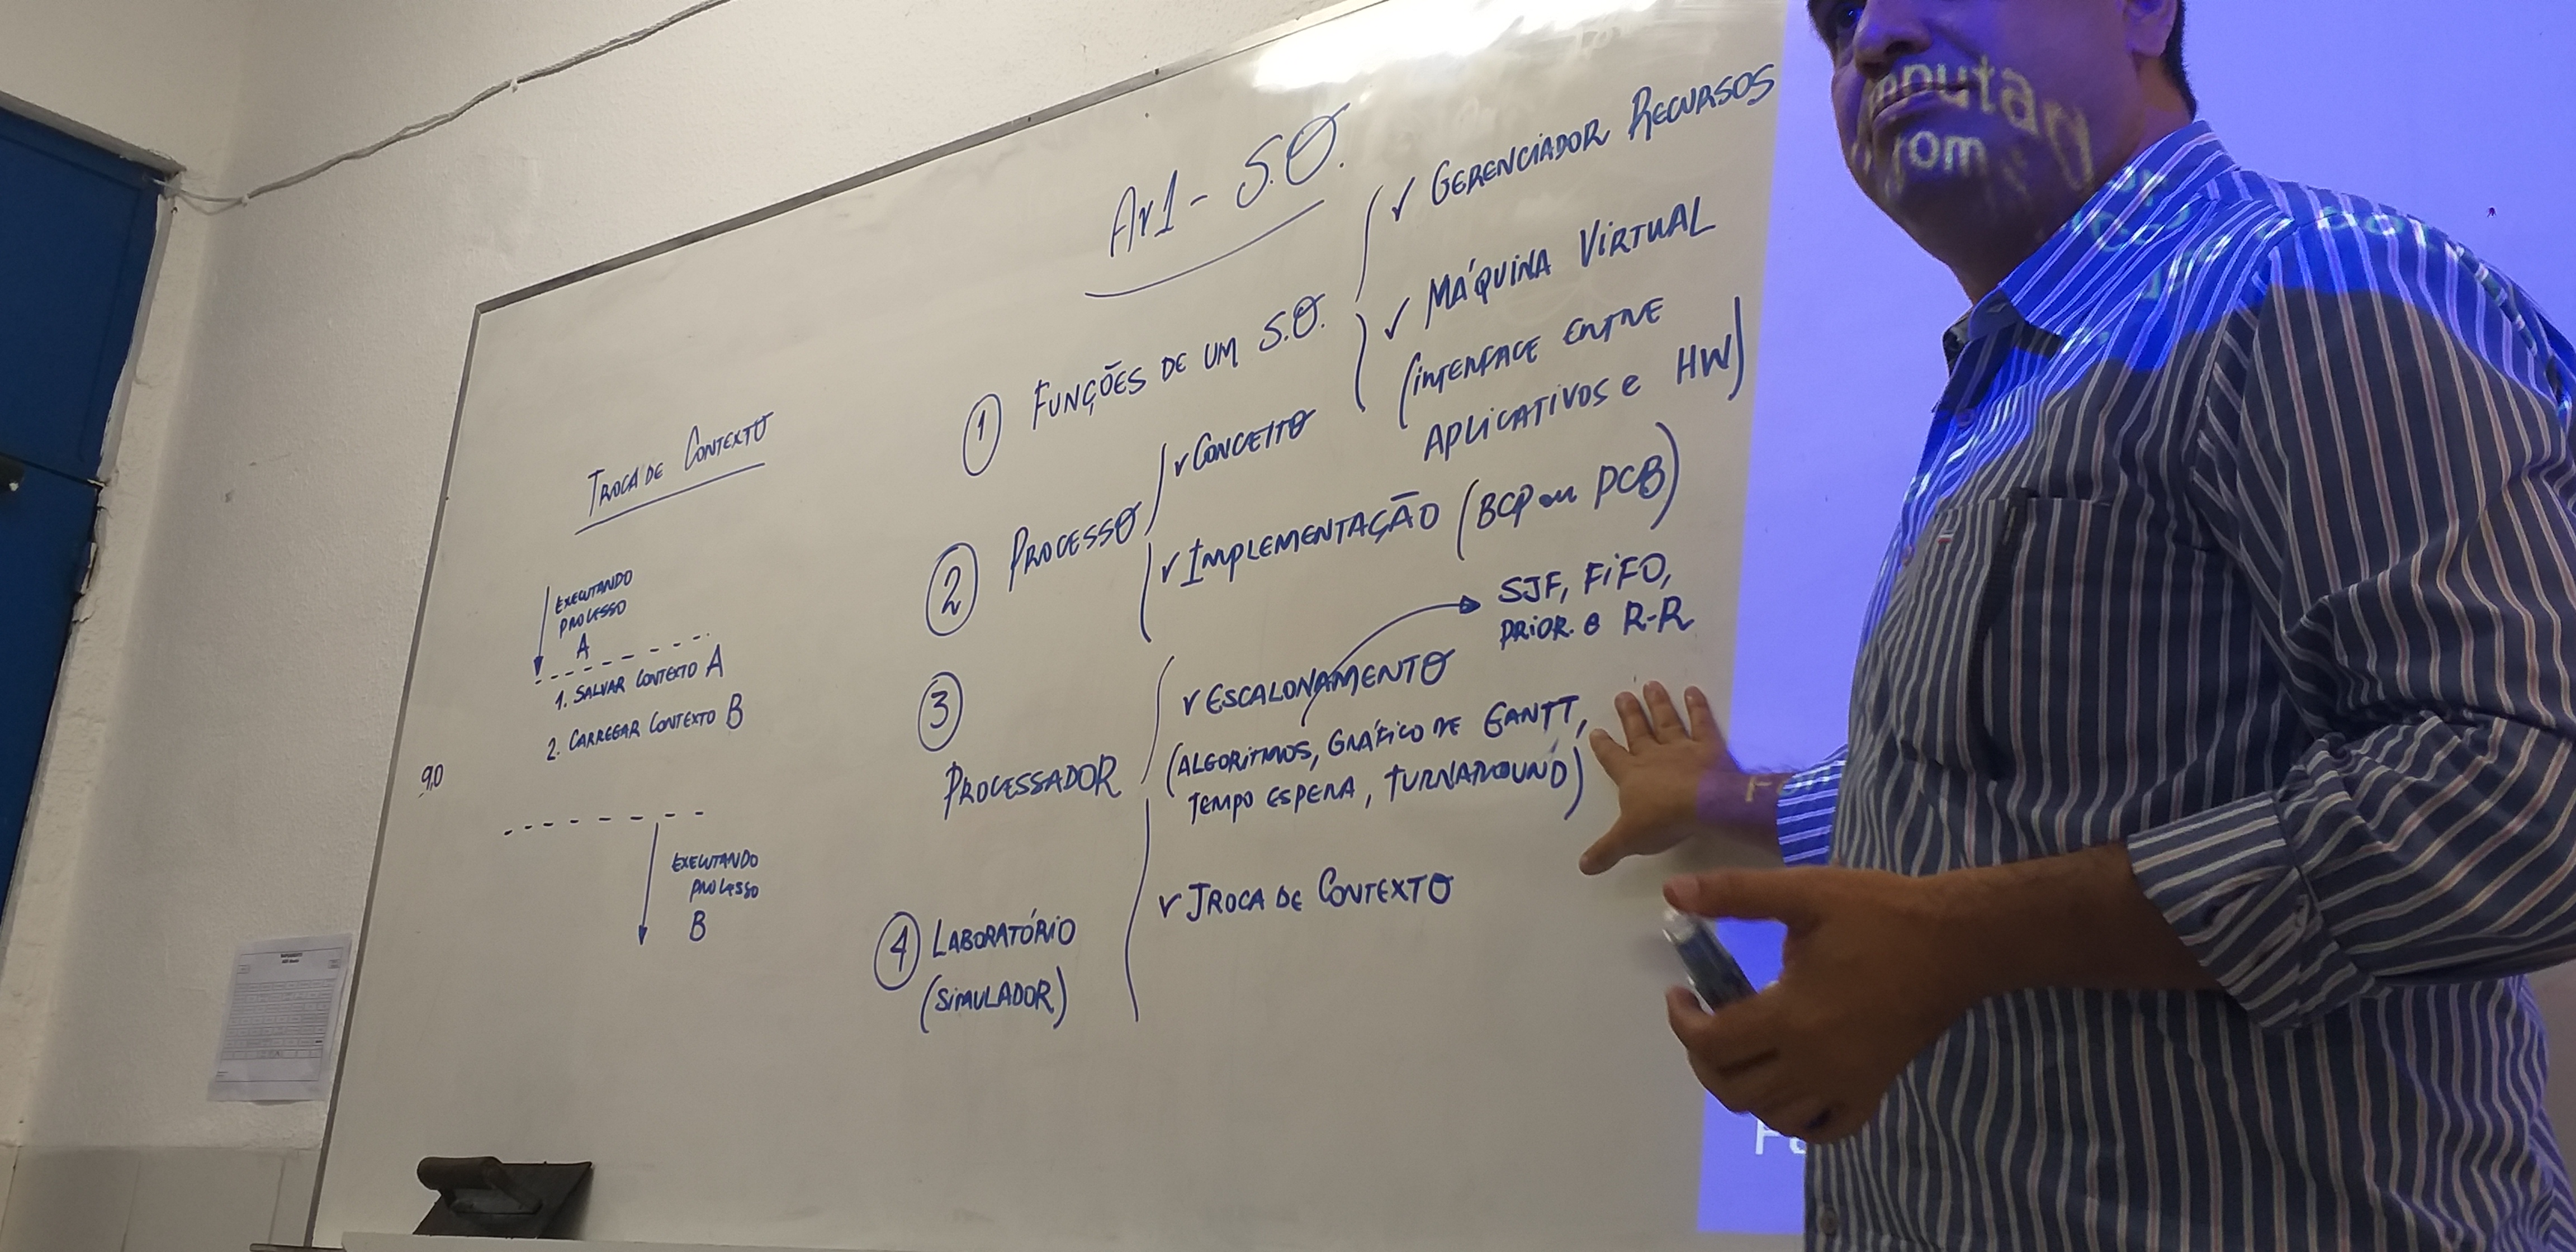 Av1 - S.O.
① FUNÇÕES DE UM S.O.
✓ GERENCIADOR RECURSOS
✓ MÁQUINA VIRTUAL
(INTERFACE ENTRE
APLICATIVOS e HW)
② PROCESSO
✓ CONCEITO
✓ IMPLEMENTAÇÃO (BCP ou PCB)
③ PROCESSADOR
✓ ESCALONAMENTO
SJF, FiFO,
PRIOR. e R-R
(ALGORITMOS, GRÁFICO DE GANTT,
TEMPO ESPERA, TURNAROUND)
✓ TROCA DE CONTEXTO
④ LABORATÓRIO
(SIMULADOR)
TROCA DE CONTEXTO
EXECUTANDO
PROCESSO
A
1. SALVAR CONTEXTO A
2. CARREGAR CONTEXTO B
9,0
EXECUTANDO
PROCESSO
B